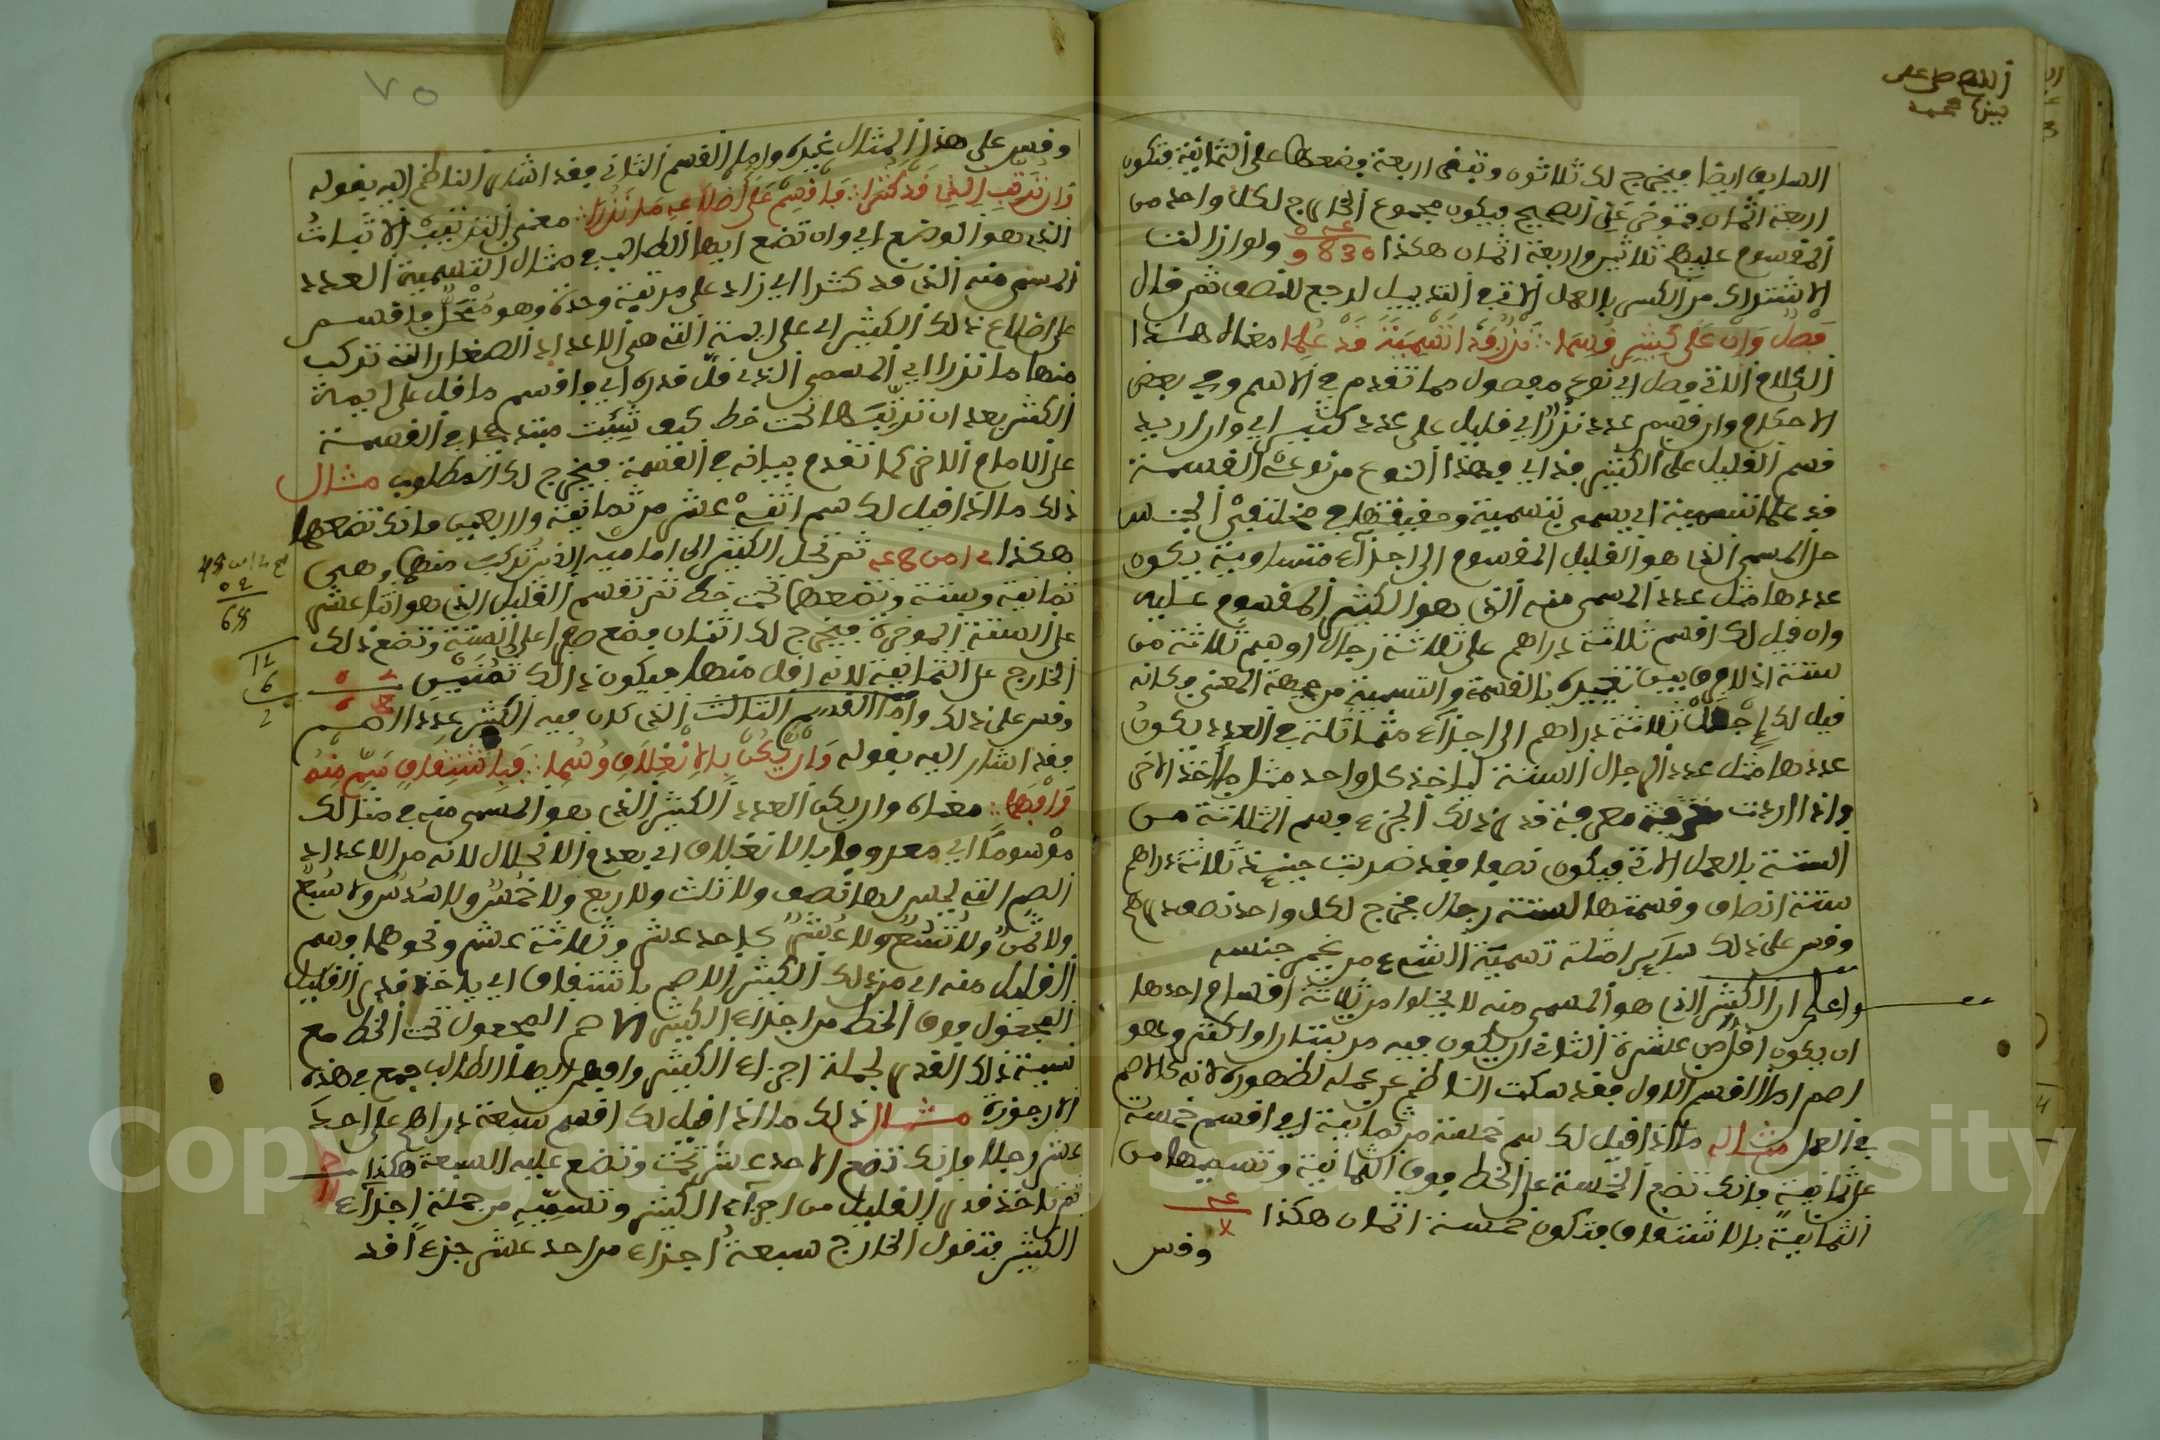 اللهم صل على
سيدنا محمد
السابق ايضا فيخرج لك ثلاثون وتبقى اربعة فضعها على الثمانية فتكون
اربعة اثمان فتوضع على الصحيح فيكون مجموع الخارج لكل واحد من
المقسوم عليهم ثلاثين واربعة اثمان هكذا ولو ازالت
الاشتراك من الكسر بالعمل الاتي في التذييل لرجع للنصف ثم قال
فصل وان على كثير قسما نزر فذا تسمية قد علما معناه هذا
الكلام الاتي فصل اي نوع مفصول مما تقدم في الاسم وفي بعض
الاحكام وان قسم عدد نزر اي قليل على عدد كثير اي وان اريد
قسم القليل على الكثير فذا اي فهذا النوع من نوعي القسمة
قد علما تسمية اي يسمى تسمية وحقيقتها في مختلفي الجنس
حل المسمى الذي هو القليل المقسوم الى اجزاء متساوية يكون
عددها مثل عدد المسمى منه الذي هو الكثير المقسوم عليه
وان قيل لك اقسم ثلاثة دراهم على ستة رجال او سم ثلاثة من
ستة اذ لا فرق بين تعبيره بالقسمة والتسمية من جهة المعنى فكانه
قيل لك اجعل ثلاثة دراهم الى اجزاء متماثلة في العدد يكون
عددها مثل عدد الرجال الستة لياخذ كل واحد مثل ما اخذ الاخر
واذا اردت معرفة قدر ذلك الجزء فسم الثلاثة من
الستة بالعمل الاتي فيكون نصفا فقد ضربت جنس ثلاثة دراهم
ستة انصاف وقسمتها لستة رجال فخرج لكل واحد نصف درهم
وقس على ذلك سائر امثلة تسمية الشيء من غير جنسه
واعلم ان الكثير الذي هو المسمى منه لا يخلوا من ثلاثة اقسام احدها
ان يكون اقل من عشرة الثاني ان يكون فيه مرتبتان او اكثر وهو
اصم اما القسم الاول فقد سكت الناظم عن عمله لظهوره لانه كالاصم
في العمل مثاله ما اذا قيل لك سم خمسة من ثمانية اي اقسم خمسة
على ثمانية فانك تضع الخمسة على الخط فوق الثمانية وتسميها من
الثمانية بالاشتقاق فتكون خمسة اثمان هكذا
وقس
٧٥
وقس على هذا المثال غيره واما القسم الثاني فقد اشار الناظم اليه بقوله
وان ترتب الذي قد كثرا فاقسم على اضلاعه ما نزرا معنى الترتيب الاثبات
الذي هو الوضع اي وان تضع ايها الطالب في مثال التسمية العدد
المسمى منه الذي قد كثرا اي زاد على مرتبة وحدة وهو منحل فاقسم
على اضلاع ذلك الكثير اي على ايمته التي هي الاعداد الصغار التي تركب
منها ما نزرا اي المسمى الذي قل قدره اي فاقسم ما قل على ايمة
الكثير بعد ان ترتبها تحت خط كيف شئت مبتدءا في القسمة
على الامام الاخر كما تقدم بيانه في القسمة فيخرج لك المطلوب مثال
ذلك ما اذا قيل لك سم اثني عشر من ثمانية واربعين فانك تضعها
هكذا ثم تحل الكثير الى اماميه الذي تركب منهما وهي
ثمانية وستة وتضعهما تحت خط ثم تقسم القليل الذي هو اثنا عشر
على الستة الموخرة فيخرج لك اثنان فضع صفرا على الستة وتضع ذلك
الخارج على الثمانية لانه اقل منها فيكون ذلك ثمنين
وقس على ذلك واما القسم الثالث الذي كان فيه الكثير عدد الاصم
فقد اشار اليه بقوله وان يكن بالانغلاق وسما فباشتقاق سم منه
وافهما معناه وان يكن العدد الكثير الذي هو المسمى منه في مثالك
موسوما اي معروفا بالانغلاق اي بعدم الانحلال لانه من الاعداد
الصم التي ليس لها نصف ولا ثلث ولا ربع ولا خمس ولا سدس ولا سبع
ولا ثمن ولا تسع ولا عشر كاحد عشر وثلاثة عشر ونحوهما فسم
القليل منه اي من ذلك الكثير الاصم باشتقاق اي ياخذ قدر القليل
المجعول فوق الخط من اجزاء الكثير الاصم المجعول تحت الخط مع
نسبة ذلك القدر لجملة اجزاء الكثير وافهم ايها الطالب جمع في هذه
الارجوزة مثال ذلك ما اذا قيل لك اقسم سبعة دراهم على احد
عشر رجلا فانك تضع الاحد عشر تحت وتضع عليه السبعة هكذا
ثم تاخذ قدر القليل من اجزاء الكثير وتسميه من جملة اجزاء
الكثير فتقول الخارج سبعة اجزاء من احد عشر جزءا قد
Copyright © King Saud University